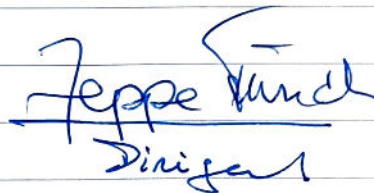 Jeppe Lund
Dirigent